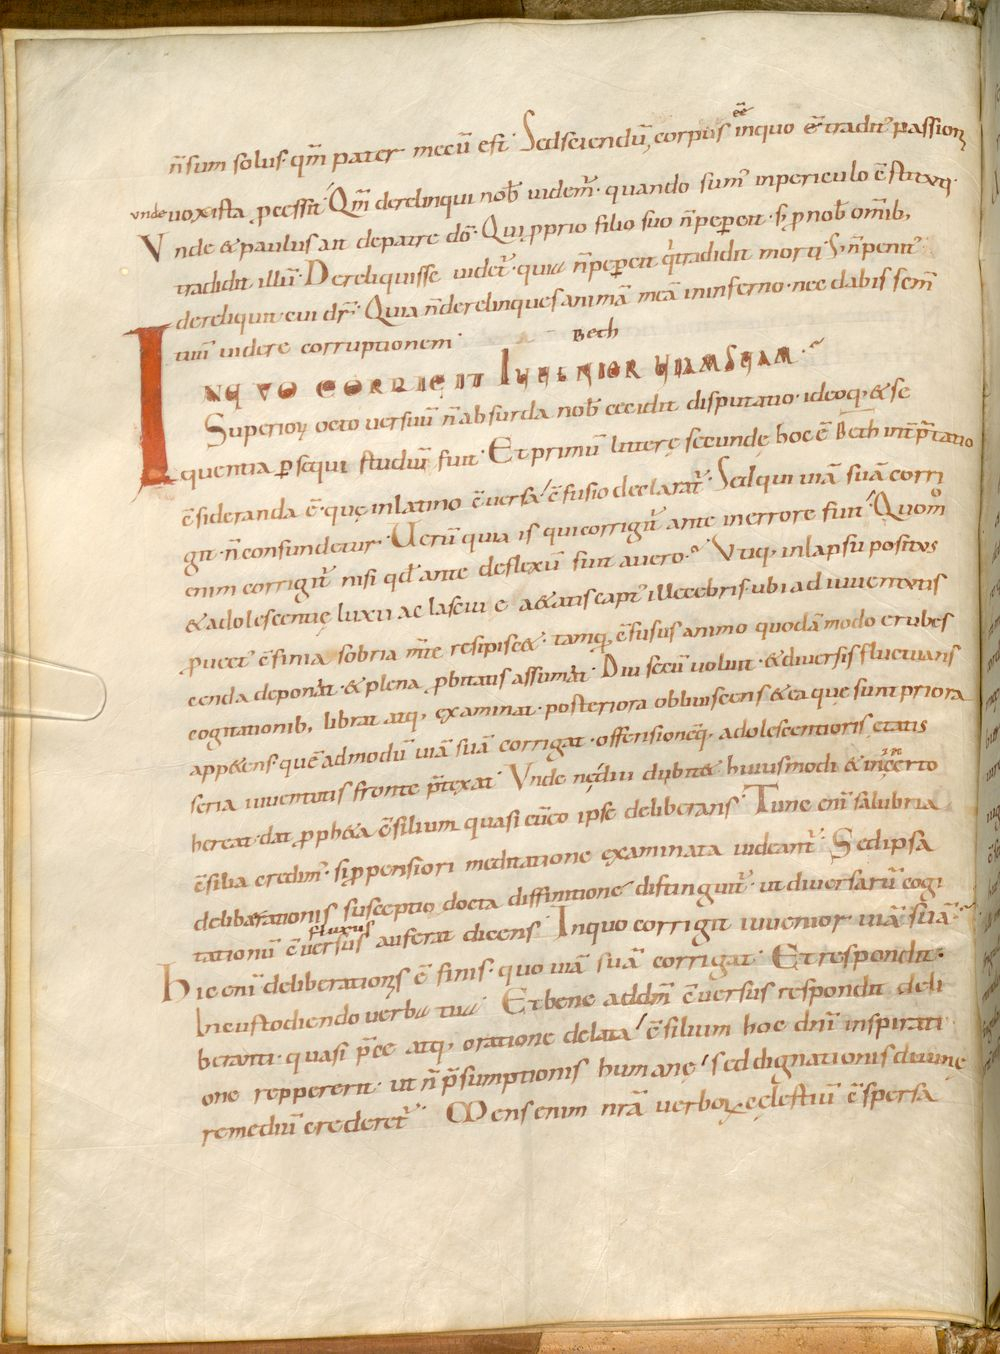 n̄ sum solus· qm̄ pater mecū est· Sed sciendū, corpus eē̄ in quo ē̄ tradit᷒ passioꝝ
unde uox ista ꝓcessit· Qm̄ derelinqui nob̄ uidem᷒· quando sum᷒ in periculo c̄stituti·
Vnde & paulus ait de patre dō· Qui ꝓprio filio suo n̄ peꝑcit· s; ꝓ nob̄ om̄ib;
tradidit illū· Dereliquisse uidet᷒· quia n̄ peꝑcit q̇ tradidit morti· S; n̄ penit᷒
dereliquit cui dr̄· Quia n̄ derelinques animā meā in inferno· nec dabis sc̄m
tuū uidere corruptionem·
Beth
IN QVO CORRIGIT IVVENIOR VIAM SVAM·
Superioꝝ octo uersuū n̄ absurda nob̄ cecidit disputatio· ideoq; & se
quentia ꝑsequi studiū fuit· Et primū litterę secundę hoc ē Beth int̄p̄tatio
c̄sideranda ē· quę in latino c̄uersa· c̄fusio declarat᷒· Sed qui uiā suā corri
git· n̄ confundetur· Verū quia is qui corrigit᷒ ante in errore fuit· Quom̊
enim corrigit᷒ nisi qd̄ ante deflexū sit a uero· Vtiq; in lapsu positus
& adolescentię luxu ac lasciuię aetatis capt᷒ illecebris· ubi ad iuuentutis
ꝓuect᷒ c̄finia sobria m̄te resipisc&· tamq; c̄fusus animo quodā modo erubes
cenda deponat· & plena ꝓbitatis assumat· Diu secū uoluit· & diuersis fluctuans
cogitationib; librat atq; examinat· posteriora obliuiscens & ea que sunt priora
app&ens· quē admodū uiā suā corrigat· offensionēq; adolescentioris ętatis
seria iuuentutis fronte p̄texat· Vnde ne diu dubit& huiusmodi & in incerto
hereat· dat ꝓph&a c̄silium quasi cū eo ipse deliberans· Tunc enī salubria
c̄silia credim᷒· si ꝓpensiori meditatione examinata uideant᷒· Sed ipsa
deliberationis susceptio docta diffinitione distinguit᷒· ut diuersarū cogi
fluxus
tationū c̄uersus auferat dicens· In quo corrigit iuuenior uiā suā·
Hic enī deliberationis ē finis· quo uiā suā corrigat· Et respondit·
In custodiendo uerba tua· Et bene ad dn̄m c̄uersus respondit deli
beranti· quasi p̄ce atq; oratione delata· c̄silium hoc dn̄i inspirati
one reppererit· ut n̄ p̄sumptionis humanę· sed dignationis diuinę
remediū crederet᷒· Mens enim nr̄a uerboꝝ cęlestiū c̄spersa